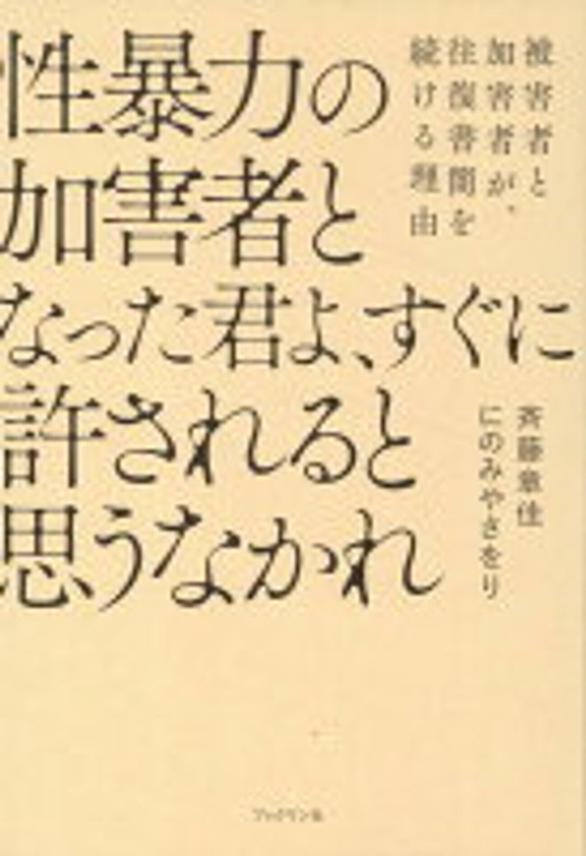 性暴力の
加害者と
なった君よ、すぐに
許されると
思うなかれ
被害者と
加害者が、
往復書簡を
続ける理由
斉藤章佳
にのみやさをり
ブックマン社